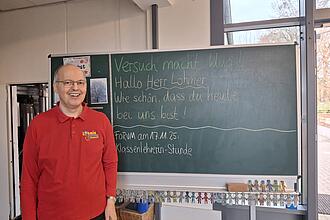 Versuch macht klug!
Hallo Herr Löhner
Wie schön, dass du heute
bei uns bist!
FORUM am 17.11.25
Klassenlehrerin-Stunde